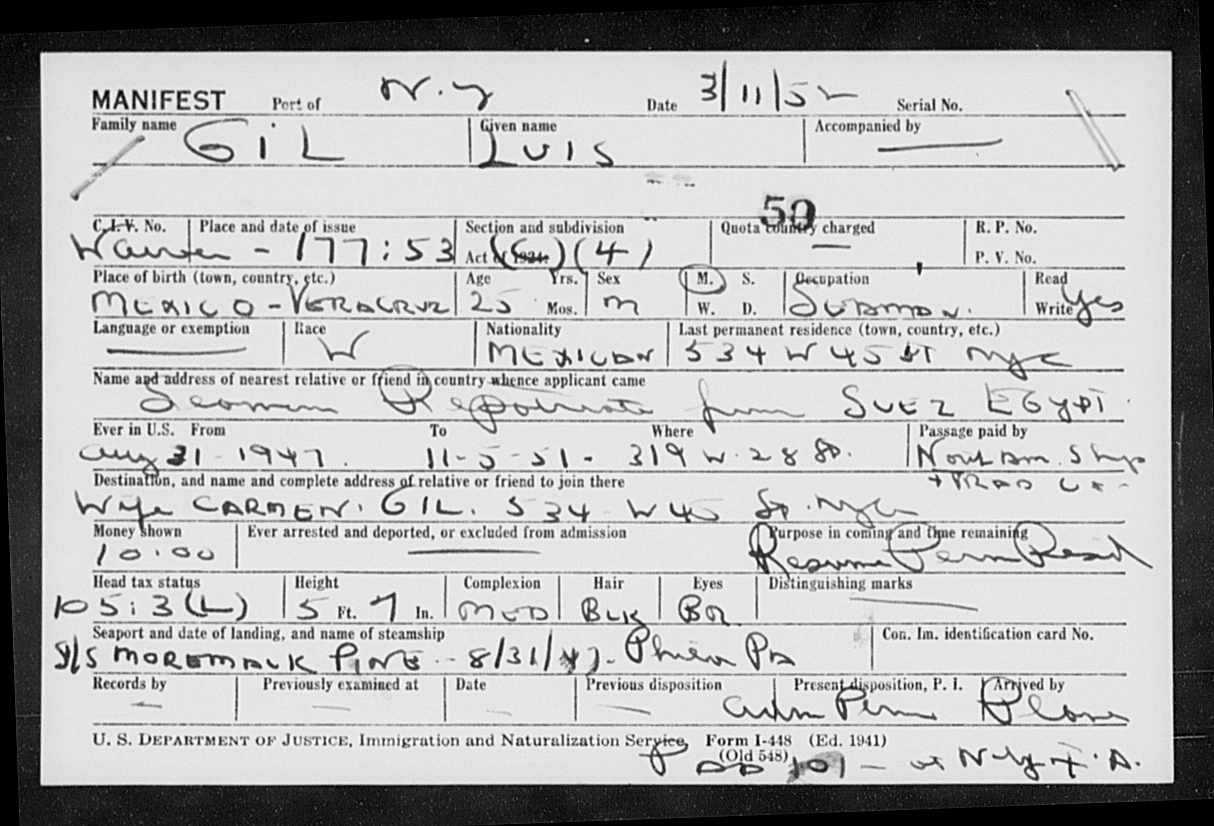 MANIFEST Port of N.Y Date 3/11/52 Serial No.
Family name GIL Given name LUIS Accompanied by
50
C.I.V. No. Place and date of issue Section and subdivision Quota country charged R. P. No.
- 177:53 Act of 1924: (6)(4) P. V. No.
Place of birth (town, country, etc.) Age Yrs. Sex M. S. Occupation Read
MEXICO - VERACRUZ 25 Mos. M W. D. Write Yes
Language or exemption Race Nationality Last permanent residence (town, country, etc.)
W MEXICAN 534 W 45 ST NYC
Name and address of nearest relative or friend in country whence applicant came
Seaman Repatriate from SUEZ EGYPT.
Ever in U.S. From To Where Passage paid by
Aug 31 - 1947. 11-5-51- 319 W. 28 St. Nort Am. Ship
+ TRAD Co-
Destination, and name and complete address of relative or friend to join there
Wife CARMEN. GIL. 534 W 45 St. NYC
Money shown Ever arrested and deported, or excluded from admission Purpose in coming and time remaining
10.00 Resume Perm Resid
Head tax status Height Complexion Hair Eyes Distinguishing marks
105:3(L) 5 Ft. 7 In. MED BLK BR
Seaport and date of landing, and name of steamship Con. Im. identification card No.
S/S PINE - 8/31/47- Phila Pa
Records by Previously examined at Date Previous disposition Present disposition, P. I. Arrived by
Adm Perm Plane
U. S. DEPARTMENT OF JUSTICE, Immigration and Naturalization Service Form I-448 (Ed. 1941)
(Old 548) 101 - at N.Y.I.A.